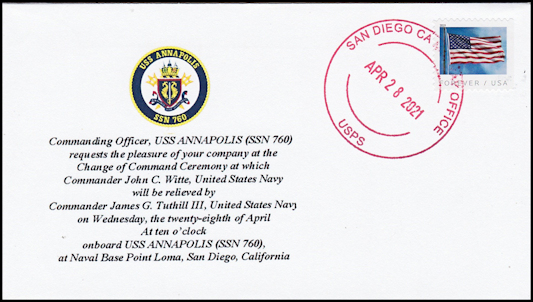 USS ANNAPOLIS
SSN 760
SAN DIEGO CA
OFFICE
APR 28 2021
USPS
FOREVER / USA
Commanding Officer, USS ANNAPOLIS (SSN 760)
requests the pleasure of your company at the
Change of Command Ceremony at which
Commander John C. Witte, United States Navy
will be relieved by
Commander James G. Tuthill III, United States Navy
on Wednesday, the twenty-eighth of April
At ten o'clock
onboard USS ANNAPOLIS (SSN 760),
at Naval Base Point Loma, San Diego, California